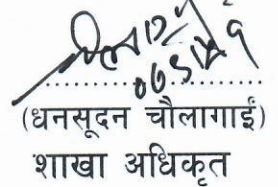 (धनसूदन चौलागाईं)
शाखा अधिकृत